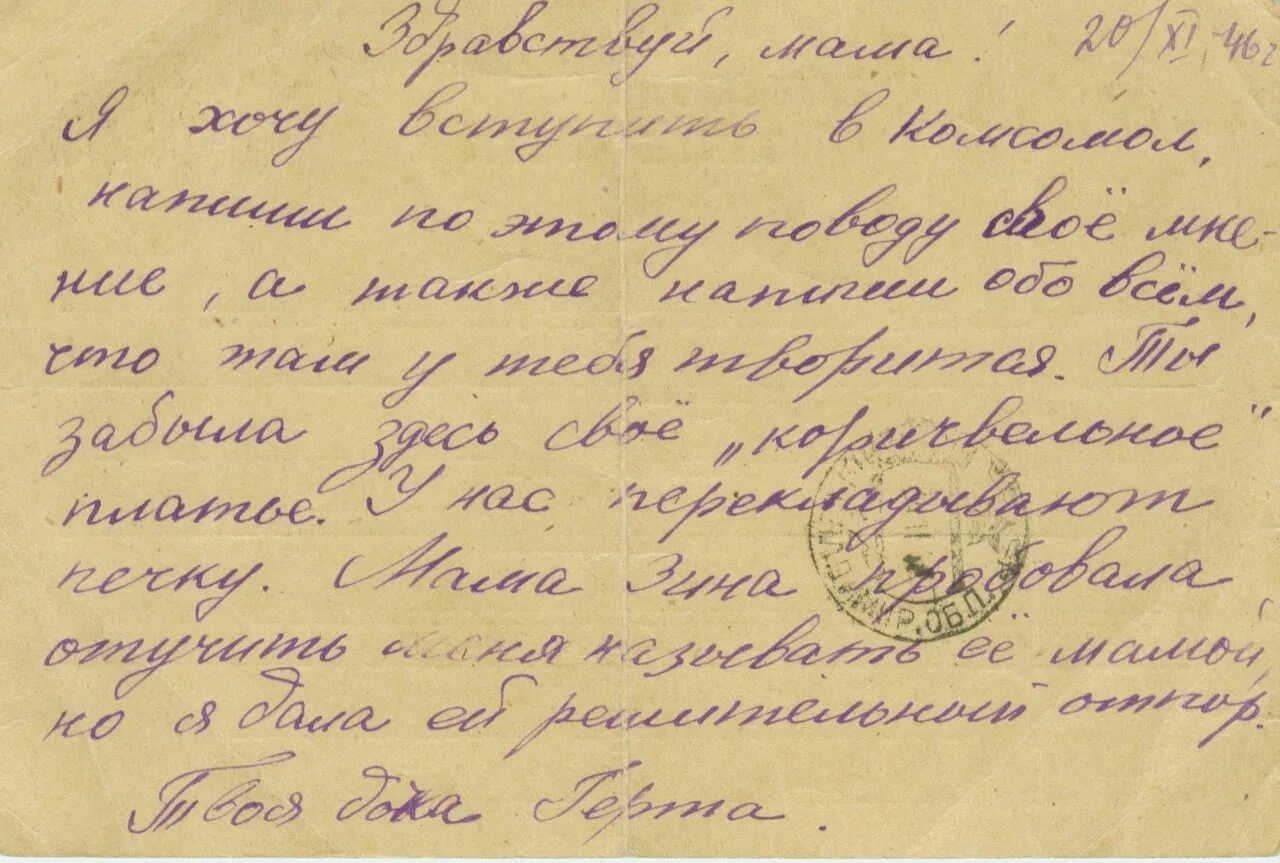 Здравствуй, мама! 20/XI 46 г
Я хочу вступить в Комсомол,
напиши по этому поводу своё мне-
ние, а также напиши обо всём,
что там у тебя творится. Ты
забыла здесь своё „коричвельное"
платье. У нас перекладывают
печку. Мама Зина пробовала
отучить меня называть её мамой,
но я дала ей решительный отпор.
Твоя дока Герта.
МИР. ОБЛ.